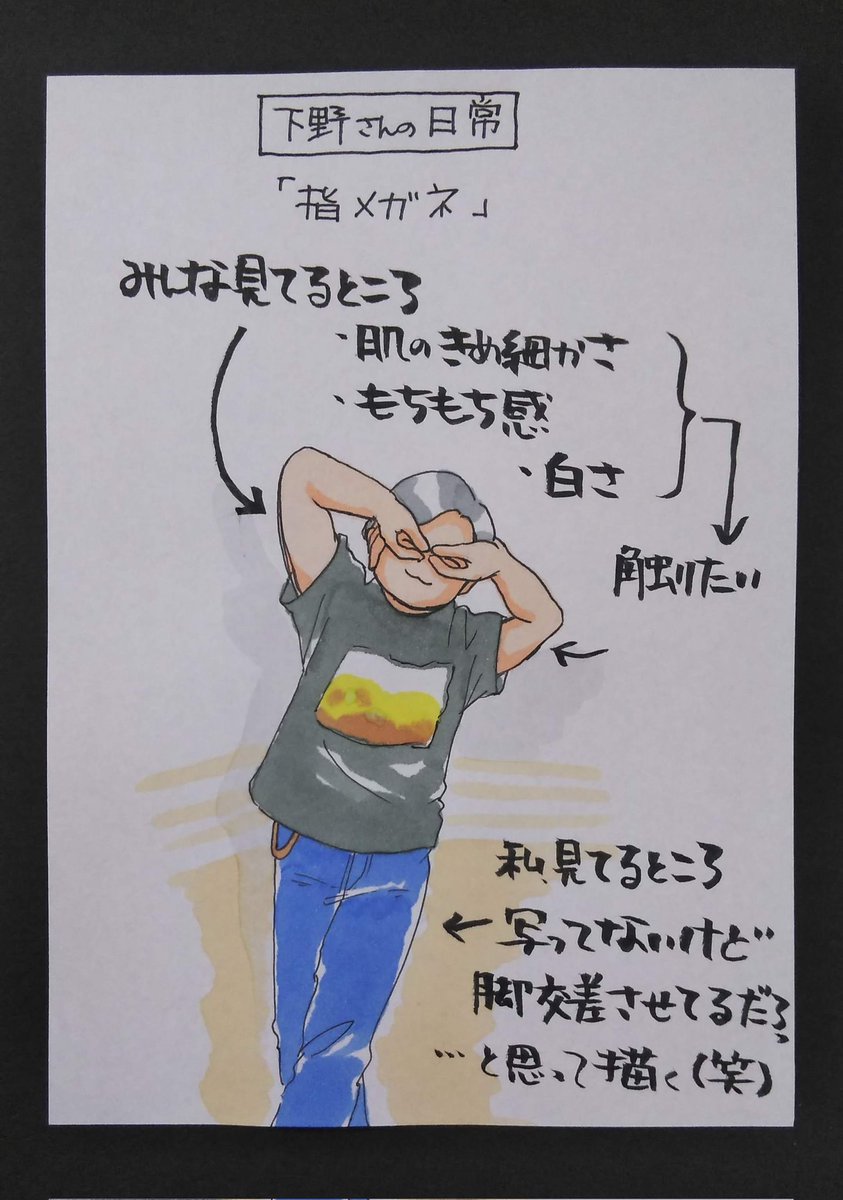 下野さんの日常
「指メガネ」
みんな見てるところ
・肌のきめ細かさ
・もちもち感
・白さ
触りたい
私、見てるところ
← 写ってないけど
脚交差させてるだろっ
…と思って描く(笑)